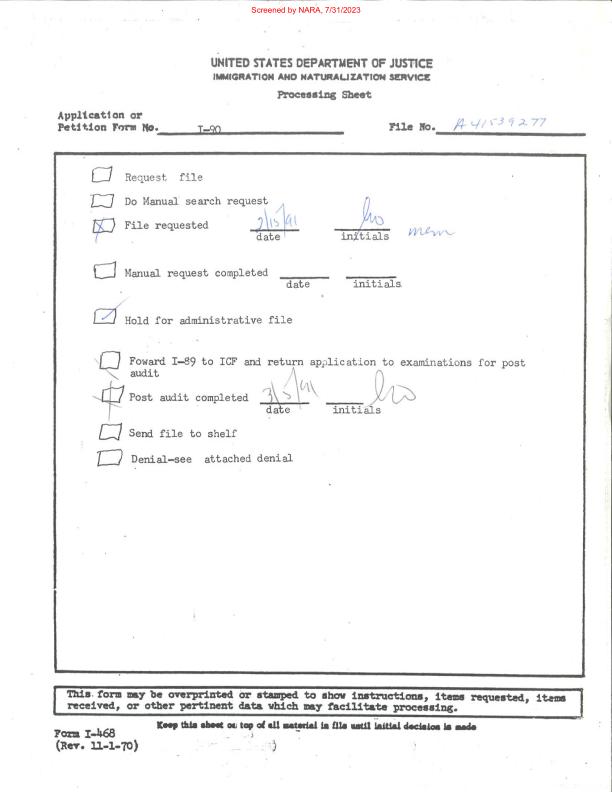 Screened by NARA, 7/31/2023
UNITED STATES DEPARTMENT OF JUSTICE
IMMIGRATION AND NATURALIZATION SERVICE
Processing Sheet
Application or
Petition Form No. I-90 File No. A41539277
Request file
Do Manual search request
File requested 2/15/91
date initials
Manual request completed
date initials
Hold for administrative file
Foward I-89 to ICF and return application to examinations for post
audit
Post audit completed 3/5/91
date initials
Send file to shelf
Denial-see attached denial
This form may be overprinted or stamped to show instructions, items requested, items
received, or other pertinent data which may facilitate processing.
Keep this sheet on top of all material in file until initial decision is made
Form I-468
(Rev. 11-1-70)